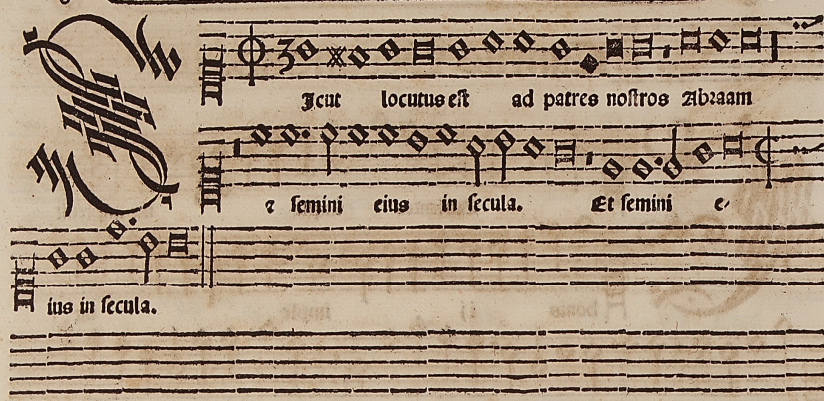 SIcut locutus est ad patres nostros Abraam
⁊ semini eius in secula. Et semini e⸗
ius in secula.